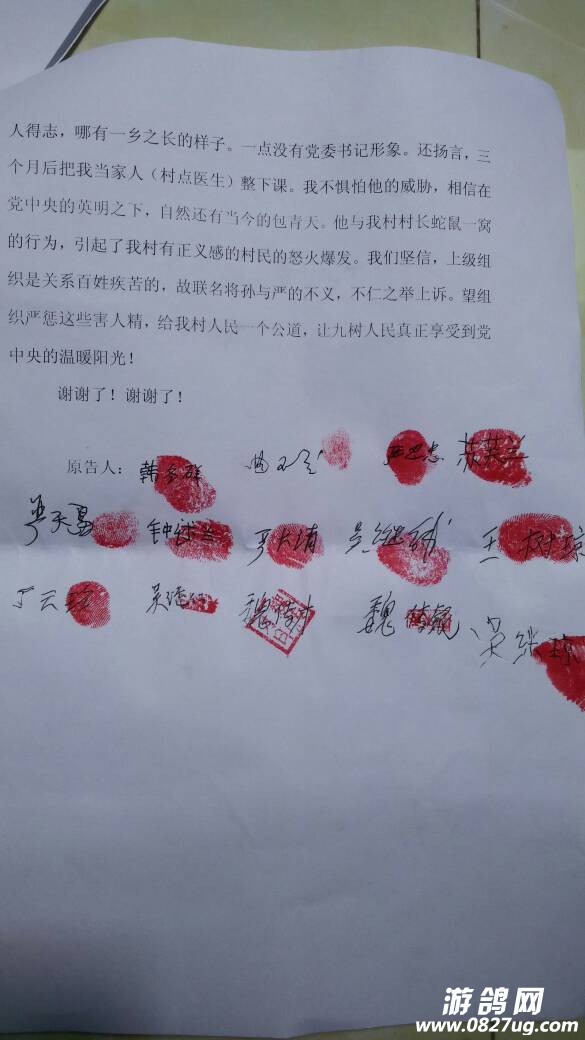 人得志，哪有一乡之长的样子。一点没有党委书记形象。还扬言，三
个月后把我当家人（村点医生）整下课。我不惧怕他的威胁，相信在
党中央的英明之下，自然还有当今的包青天。他与我村村长蛇鼠一窝
的行为，引起了我村有正义感的村民的怒火爆发。我们坚信，上级组
织是关系百姓疾苦的，故联名将孙与严的不义，不仁之举上诉。望组
织严惩这些害人精，给我村人民一个公道，让九树人民真正享受到党
中央的温暖阳光！
谢谢了！谢谢了！
原告人：
王树琼
丁云
魏
魏
游鸽网
www.0827ug.com